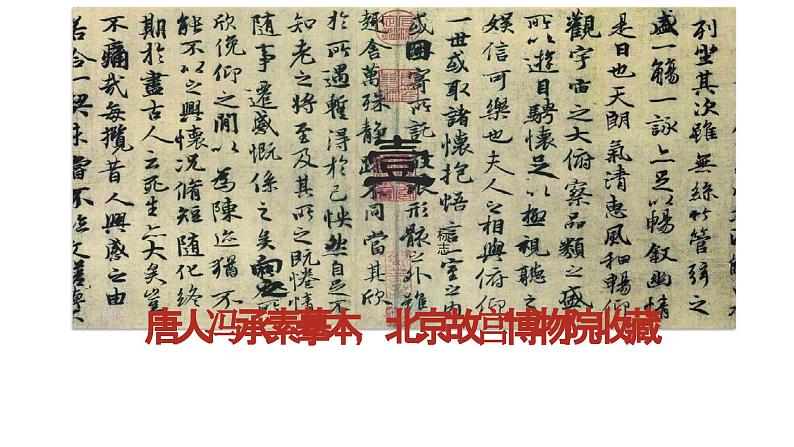 列坐其次雖無絲竹管弦之
盛一觴一詠亦足以暢敘幽情
是日也天朗氣清惠風和暢仰
觀宇宙之大俯察品類之盛
所以遊目騁懷足以極視聽之
娛信可樂也夫人之相與俯仰
一世或取諸懷抱悟言一室之內
或因寄所託放浪形骸之外雖
趣舍萬殊靜躁不同當其欣
於所遇暫得於己怏然自足不
知老之將至及其所之既惓情
隨事遷感慨係之矣向之所
欣俛仰之閒以為陳迹猶不
能不以之興懷況脩短隨化終
期於盡古人云死生亦大矣豈
不痛哉每攬昔人興感之由
若合一契未嘗不臨文嗟
壹
标志
唐人冯承素摹本，北京故宫博物院收藏